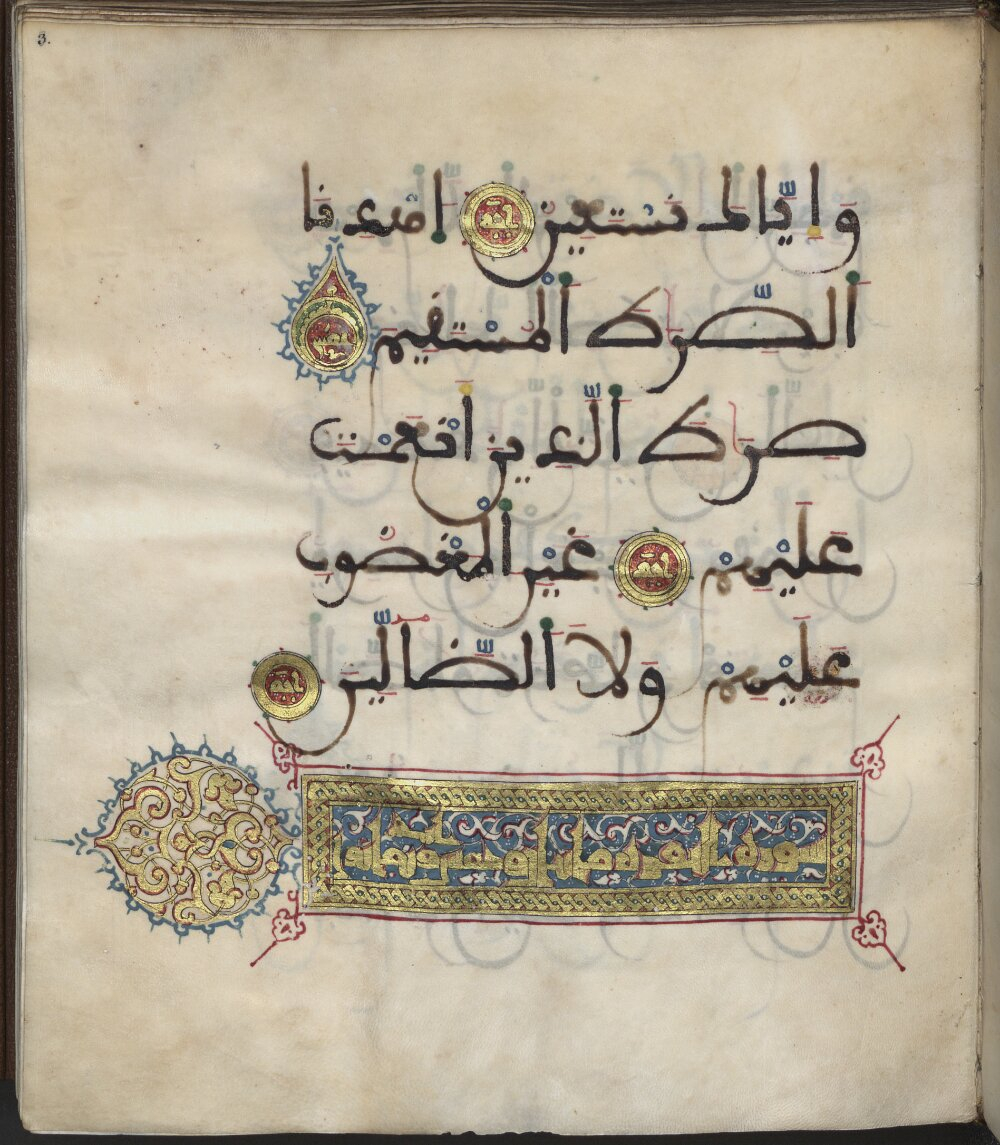 3.
وَإِيَّاكَ نَسْتَعِينُ اهْدِنَا
الصِّرَاطَ الْمُسْتَقِيمَ
صِرَاطَ الَّذِينَ أَنْعَمْتَ
عَلَيْهِمْ غَيْرِ الْمَغْضُوبِ
عَلَيْهِمْ وَلَا الضَّالِّينَ
سورة البقرة مايتا وخمس وثمانون